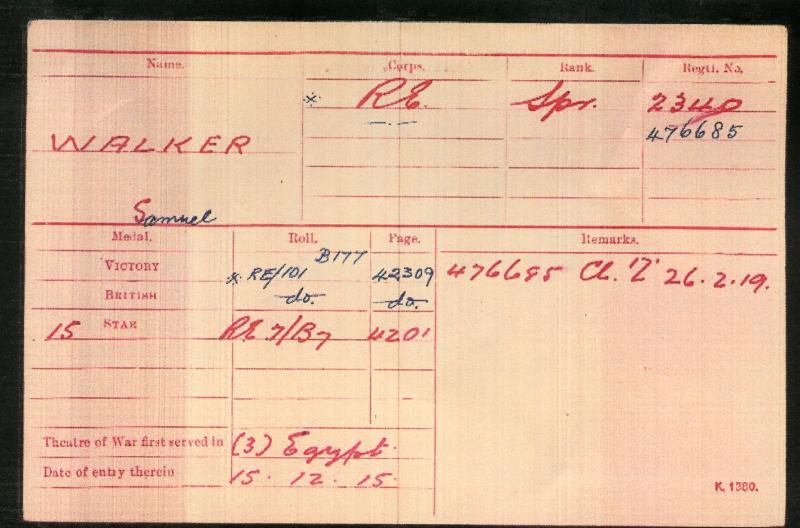 Name. Corps. Rank. Regtl. No.
* R.E. Spr. 2340
WALKER 476685
Samuel
Medal. Roll. Page. Remarks.
VICTORY * RE/101 B177 42309 476685 Cl. 'Z' 26.2.19.
BRITISH do. do.
15 STAR R.E 7/B7 4201
Theatre of War first served in (3) Egypt.
Date of entry therein 15. 12. 15.
K. 1380.